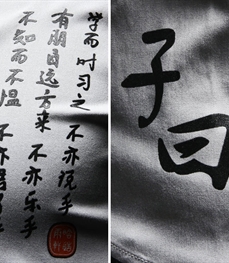 子曰
学而时习之
不亦说乎
有朋自远方来
不亦乐乎
不知而不愠
不亦